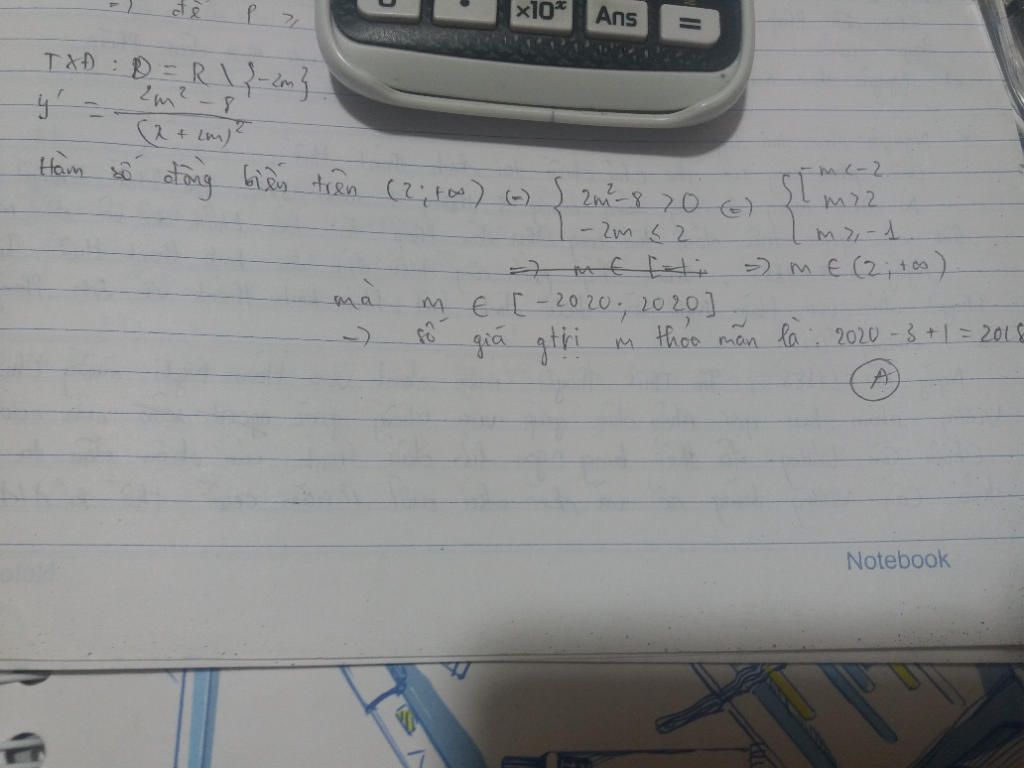 =) để P ≥
0 · ×10ˣ Ans =
TXĐ : D = R \ {-2m}
y' = (2m² - 8)/(x + 2m)²
Hàm số đồng biến trên (2; +∞) (=) { 2m² - 8 > 0 ; -2m ≤ 2 (=) { [ m < -2 ; m > 2 ; m ≥ -1
=) m ∈ [-1; =) m ∈ (2; +∞)
mà m ∈ [-2020; 2020]
=) số giá gtrị m thỏa mãn là : 2020 - 3 + 1 = 2018
A
Notebook